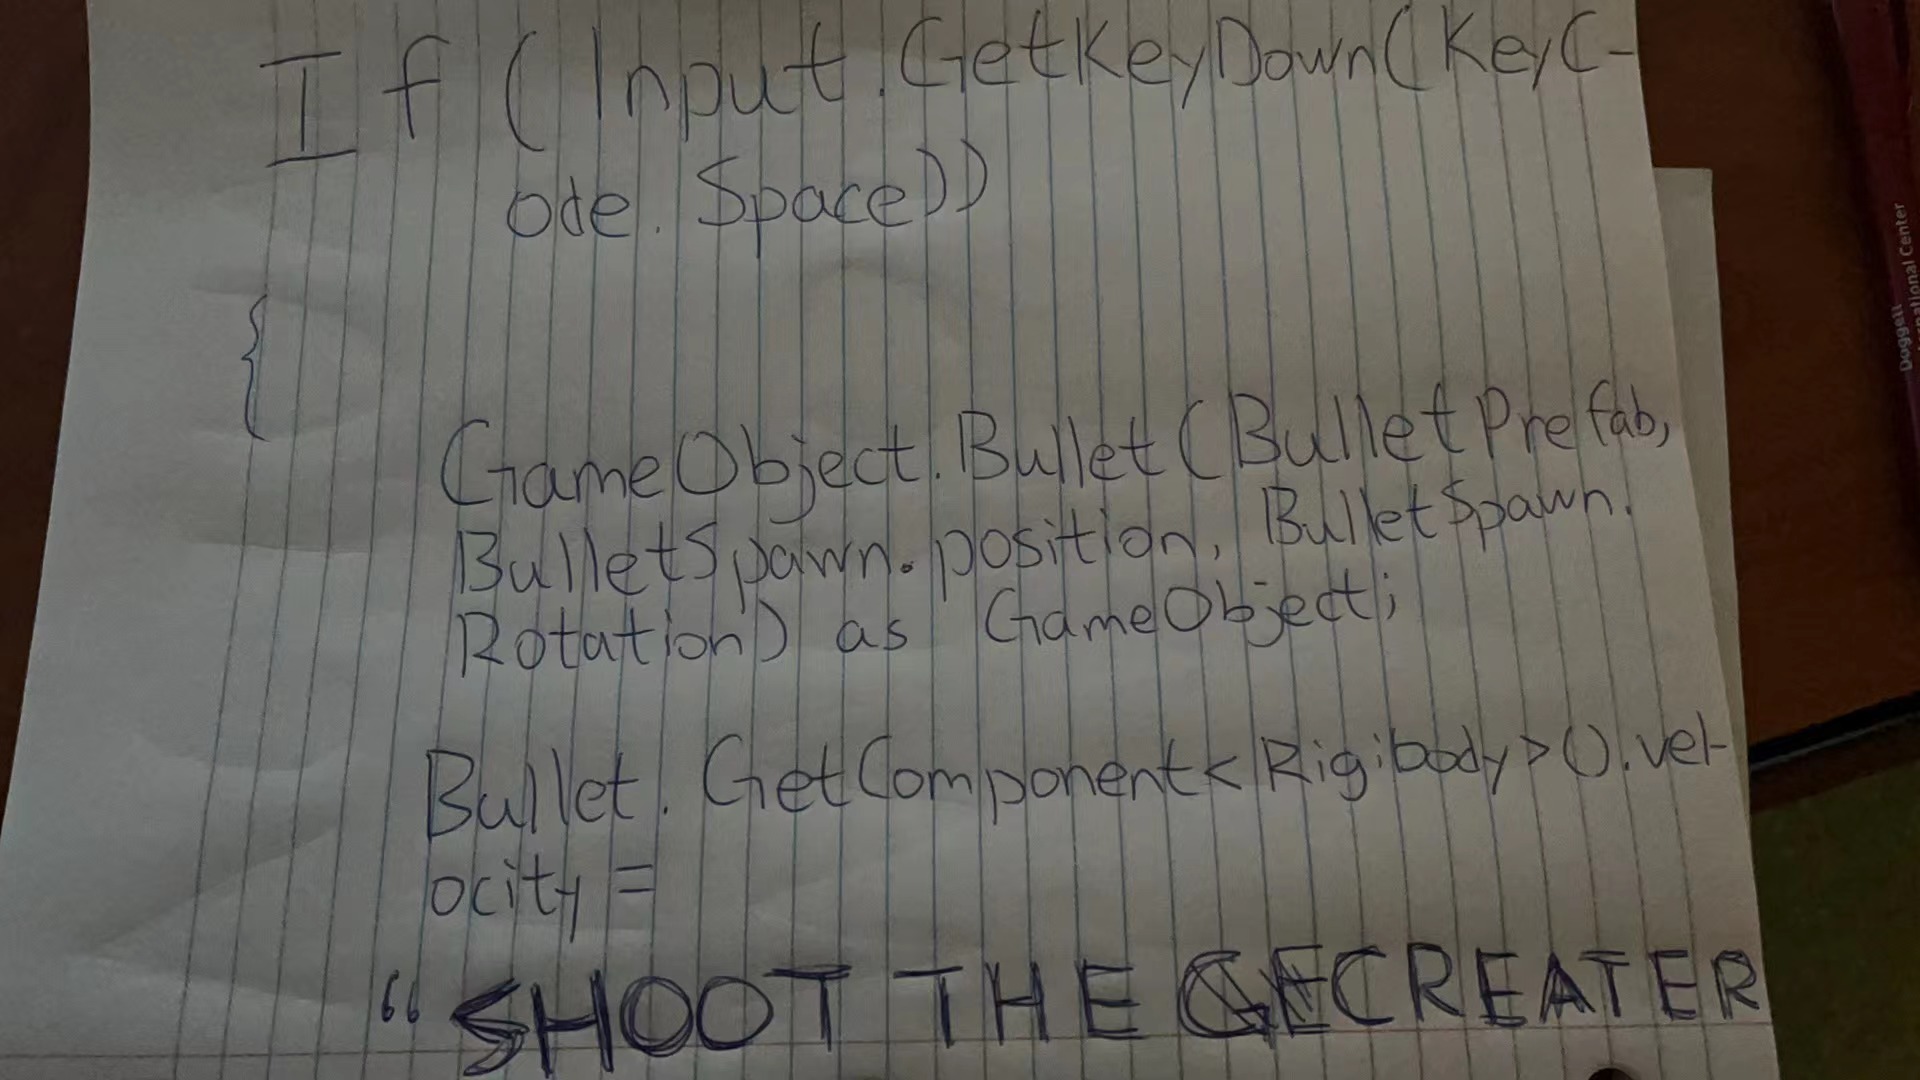 If (Input.GetKeyDown(KeyC-
ode.Space))
{
GameObject.Bullet(BulletPrefab,
BulletSpawn.position, BulletSpawn.
Rotation) as GameObject;
Bullet.GetComponent<Rigibody>().vel-
ocity =
“SHOOT THE CREATER
Doggett
national Center